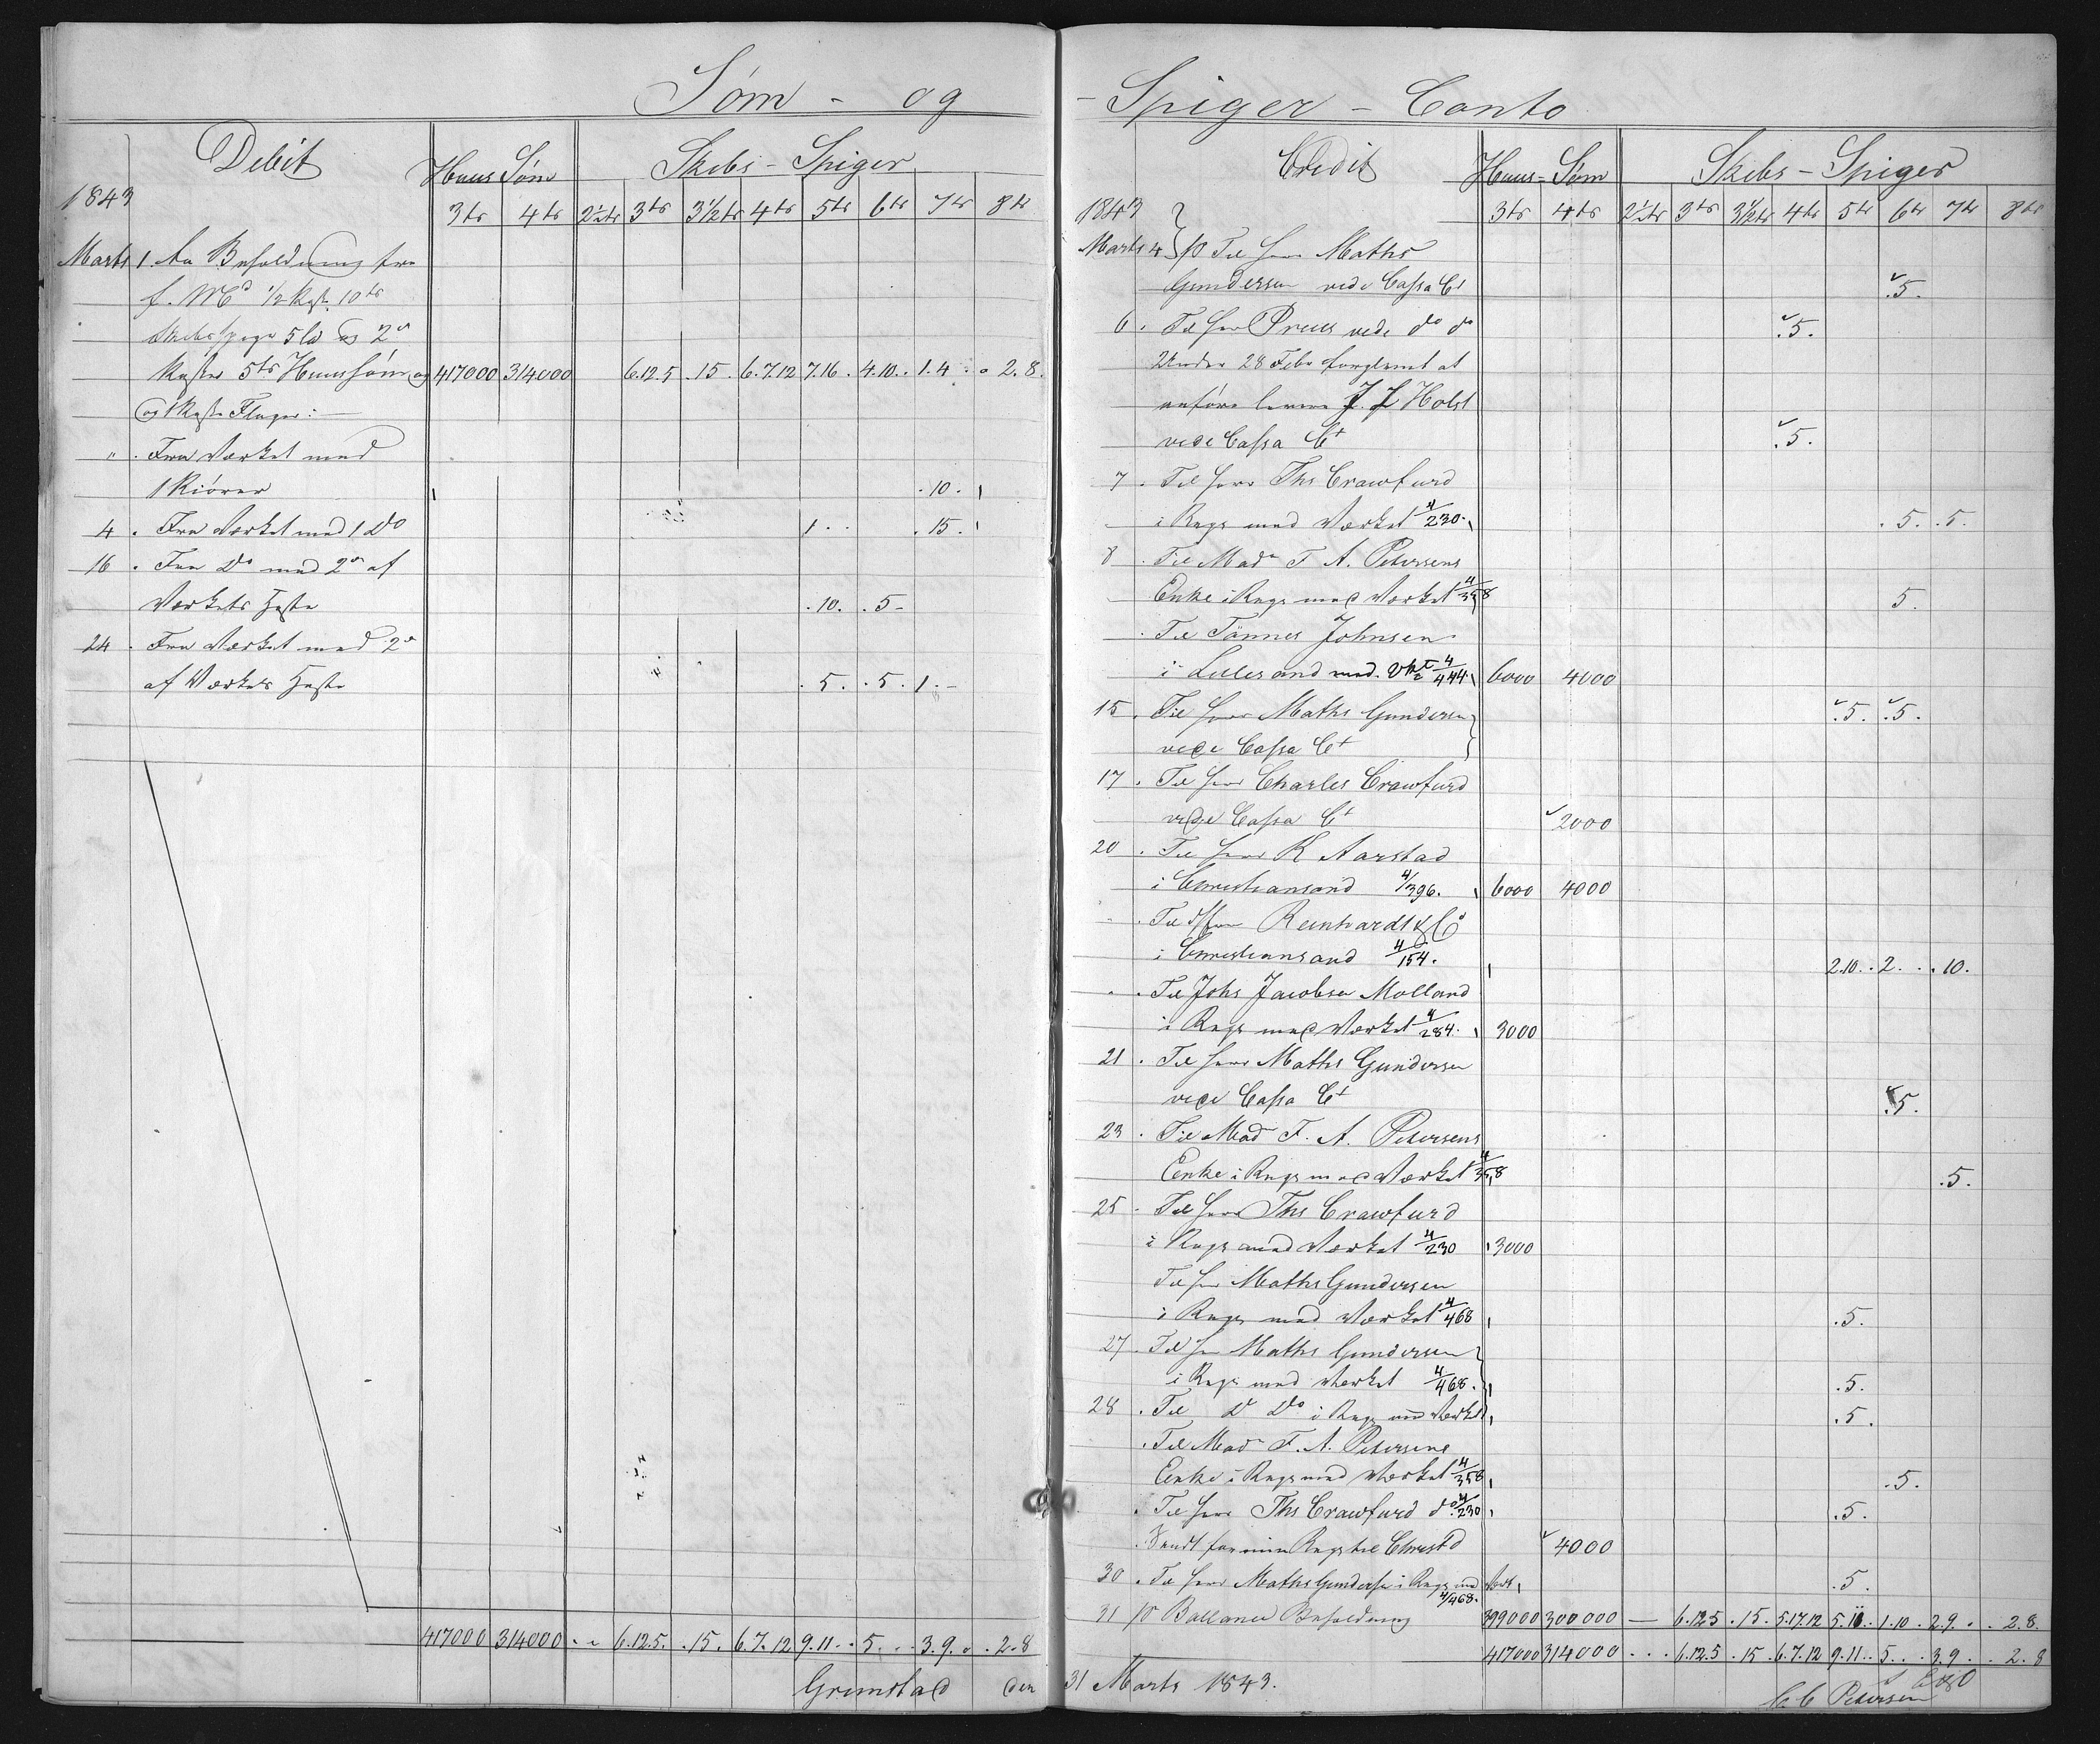 Søm - og
Debit
Huus Søm
Skibs - Spiger
1843
3ts 4ts 2½ts 3ts 3½ts 4ts 5ts 6ts 7ts 8ts
Marts 1. An Beholdning fra
f. Md ½ Kast 10ts
Skibsspiger 5 Ld og 2
Kaster 5ts Huussøm og 417000 314000 6.12.5 .15. 6.7.12 7.16. 4.10. 1.4. 2.8.
og 1 Kaste
" . Fra Værket med
1 Kiører .10.
4 . Fra Værket med 1 Do 1.. .15.
16 . Fra Do med 2 af
Værkets Heste .10. .5-
24 . Fra Værket med 2
af Værkets Heste .5. .5. 1.-
417000 314000 . . 6.12.5. .15. 6.7.12 9.11. . 5. . . 3.9. . . 2.8
Grimstad den
- Spiger - Conto
Credit
Huus - Søm
Skibs - Spiger
1843
3ts 4ts 2½ts 3ts 3½ts 4ts 5ts 6ts 7ts 8ts
Marts 4 pr Til Herr Maths
Gundersen vide Cassa Ct .5.
6 . Til Herr Preus vide do do .5.
Under 28 Febr forglemt at
anføre J. J Holst
vide Cassa Ct .5.
7 . Til Herr Ths Crawfurd
i Regn med Værket 4/230. .5. .5.
8 . Til Mad F A. Petersens
Enke i Regn med Værket 4/358 5.
. Til Tønnes Johnsen
i Lillesand med Vkt 4/444. 6000 4000
15 . Til Herr Maths Gundersen .5. .5.
vide Cassa Ct
17 . Til Herr Charles Crawfurd
vide Cassa Ct 2000
20 . Til Herr K Aarstad
i Christiansand 4/396. 6000 4000
. Til Reinhardt & Co
i Christiansand 4/154. 2.10. .2. . .10.
. Til Johs Jacobsen Molland
i Regn med Værket 4/284. 3000
21 . Til Herr Maths Gundersen
vide Cassa Ct .5.
23 . Til Mad F. A. Petersens
Enke i Regn med Værket 4/358 .5.
25 . Til Herr Ths Crawfurd
i Regn med Værket 4/230 3000
Til Herr Maths Gundersen
i Regn med Værket 4/468 .5.
27 . Til Herr Maths Gundersen
i Regn med Værket 4/468. .5.
28 . Til Do Do i Regn med Værket .5.
. Til Mad F. A. Petersens
Enke i Regn med Værket 4/358 .5.
. Til Herr Ths Crawfurd do 4/230 .5.
. Sendt for min Regn til Christd 4000
30 . Til Herr Maths Gundersen i Regn med Værk .5.
4/468.
31 pr Ballance Beholdning 399000 300000 — 6.12.5 .15. 5.17.12 5.11. . 1.10. 2.9. . . 2.8.
417000 314000 . . . 6.12.5 .15. 6.7.12 9.11. . 5. . . 3.9. . . 2.8
31 Marts 1843.
C. C Petersen